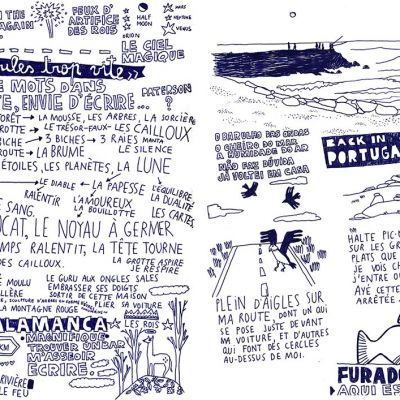 IN THE
AGAIN
FEUX D'
ARTIFICE
DES ROIS
HALF
MOON
ORION
MARS
NEPTUNE
VENUS
LE CIEL
MAGIQUE
ules trop vite »
E MOTS D'ANS
TE, ENVIE D'ÉCRIRE...
PATERSON
?
ORÊT → LA MOUSSE, LES ARBRES, LA SORCIÈRE
ROTTE → LE TRÉSOR-FAUX- LES CAILLOUX
→ 3 BICHES → 3 RAIES MANTA
ROUTE → LA BRUME LE SILENCE
ÉTOILES, LES PLANÈTES, LA LUNE
LE DIABLE ← LA PAPESSE
L'ÉQUILIBRE,
RALENTIR L'AMOUREUX LA DUALITÉ
LA BOUILLOTTE LES CARTES
SANG.
CAT, LE NOYAU À GERMER
MPS RALENTIT, LA TÊTE TOURNE
DES CAILLOUX.
LA GROTTE ASPIRE
JE RESPIRE
É MOULU
LLÈRE
LE GURU AUX ONGLES SALES
EMBRASSER SES DOIGTS
SORTIR DE CETTE MAISON
PLIER SA VOITURE.
LA MONTAGNE ROUGE
ALAMANCA
LES ROIS
KM
MAGNIFIQUE
TROUVER UN BAR
M'ASSEOIR
ECRIRE.
RIVIÈRE
LE FEU
O BARULHO DAS ONDAS
O CHEIRO DO MAR
A HUMIDADE DO AR
NÃO FAZ DÚVIDA
JÁ VOLTEI EM CASA
BACK IN
PORTUGA
PLEIN D'AIGLES SUR
MA ROUTE, DONT UN QUI
SE POSE JUSTE DEVANT
MA VOITURE, ET D'AUTRES
QUI FONT DES CERCLES
AU-DESSUS DE MOI.
HALTE PIC-N
SUR LES GR
PLATS QUE
JE VOIS CH
J'ENTRE OU
AYÉ CETTE
ARRÊTÉE.
FURADO
AQUI ES